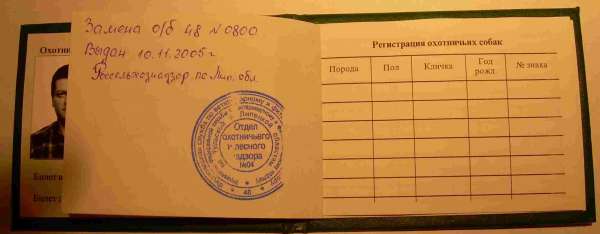 Замена о/б 48 N 0800
Выдан 10.11.2005 г
Россельхознадзор по Лип. обл.
Отдел
охотничьего
и лесного
надзора
№04
48
Регистрация охотничьих собак
Порода Пол Кличка Год рожд. № знака